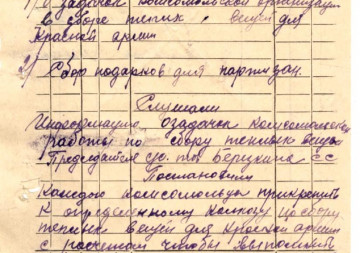 1) О задачах комсомольской организации
в сборе теплых вещей для
Красной армии
2) Сбор подарков для партизан.
Слушали
Информацию о задачах комсомольской
работы по сбору теплых вещей
Председателя
Постановили
Каждого комсомольца прикрепить
к определенному колхозу по сбору
теплых вещей для Красной армии
с расчетом чтобы выполнить